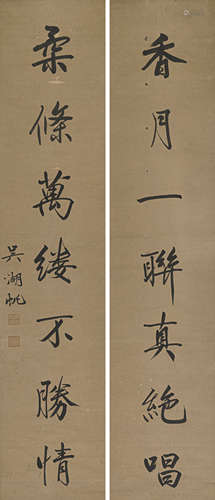 香月一聯真絕唱
柔條萬缕不勝情
吳湖帆